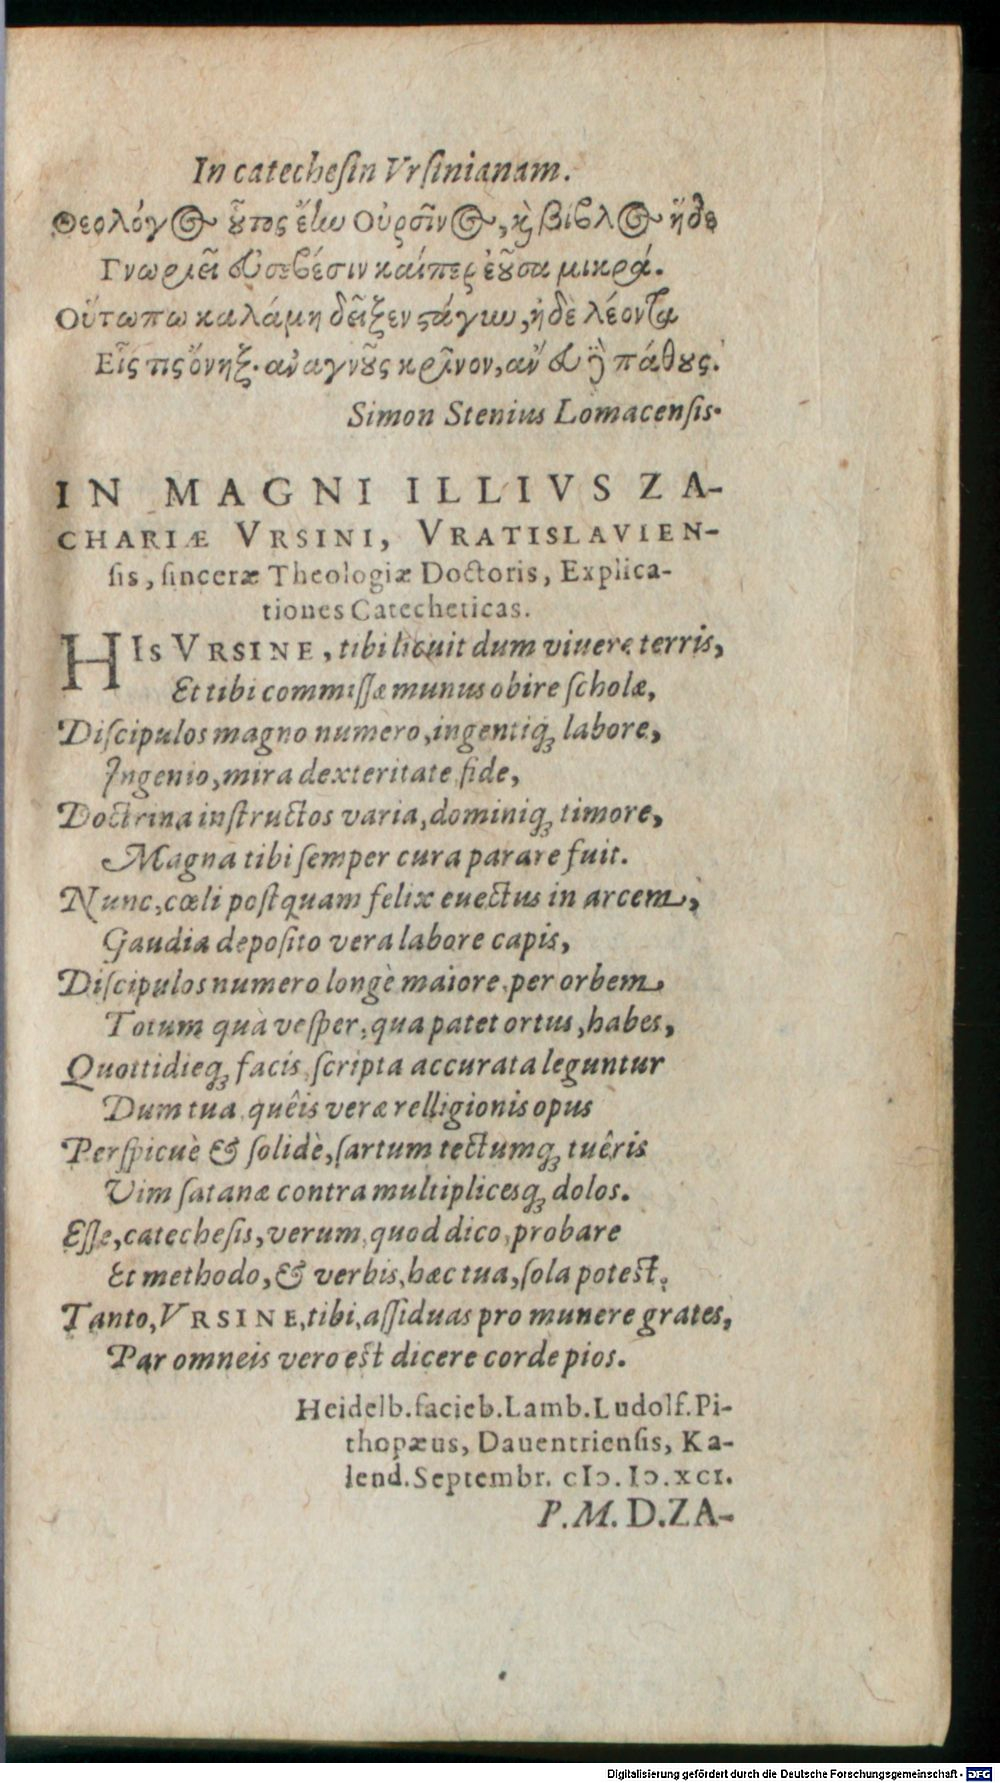 In catecheſin Vrſinianam.
Θεολόγος οὗτος ἔην Οὐρσῖνος, καὶ βίβλος ἥδε
Γνωριεῖ εὐσεβέσιν καίπερ ἐοῦσα μικρά.
Οὕτωπω καλάμη δεῖξεν στάχυν, ἠδὲ λέοντα
Εἷς τις ὄνηξ. ἀναγνοὺς κρῖνον, ἄνευ πάθους.
Simon Stenius Lomacenſis.
IN MAGNI ILLIVS ZA-
CHARIÆ VRSINI, VRATISLAVIEN-
ſis, ſinceræ Theologiæ Doctoris, Explica-
tiones Catecheticas.
HIs VRSINE, tibi licuit dum viuere terris,
Et tibi commiſſæ munus obire ſcholæ,
Diſcipulos magno numero, ingentiq́ꝫ labore,
Ingenio, mira dexteritate, fide,
Doctrina inſtructos varia, dominiq́ꝫ timore,
Magna tibi ſemper cura parare fuit.
Nunc, cœli poſtquam felix euectus in arcem,
Gaudia depoſito vera labore capis,
Diſcipulos numero longè maiore, per orbem
Totum quà veſper, qua patet ortus, habes,
Quottidieq́ꝫ facis, ſcripta accurata leguntur
Dum tua, quêis veræ relligionis opus
Perſpicuè & ſolidè, ſartum tectumq́ꝫ tuêris
Vim ſatanæ contra multiplicesq́ꝫ dolos.
Eſſe, catecheſis, verum, quod dico, probare
Et methodo, & verbis, hæc tua, ſola poteſt.
Tanto, VRSINE, tibi, aſſiduas pro munere grates,
Par omneis vero eſt dicere corde pios.
Heidelb. facieb. Lamb. Ludolf. Pi-
thopæus, Dauentrienſis, Ka-
lend. Septembr. cIↄ. Iↄ. xcI.
P. M. D. ZA-
Digitalisierung gefördert durch die Deutsche Forschungsgemeinschaft - DFG